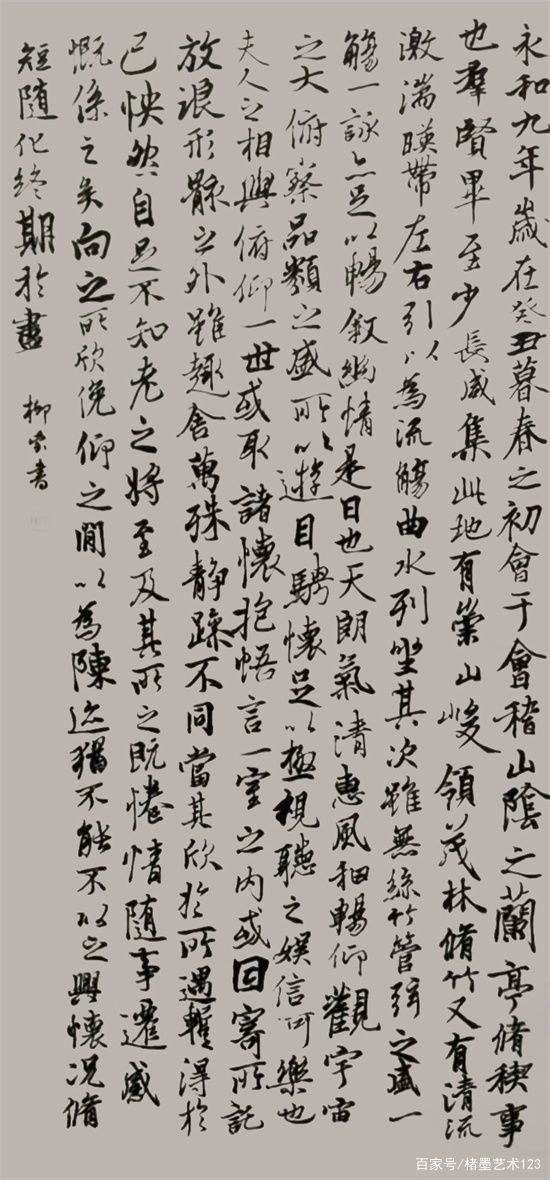 永和九年歲在癸丑暮春之初會于會稽山陰之蘭亭脩稧事
也羣賢畢至少長咸集此地有崇山峻領茂林脩竹又有清流
激湍暎帶左右引以為流觴曲水列坐其次雖無絲竹管弦之盛一
觴一詠亦足以暢敘幽情是日也天朗氣清惠風和暢仰觀宇宙
之大俯察品類之盛所以遊目騁懷足以極視聽之娛信可樂也
夫人之相與俯仰一世或取諸懷抱悟言一室之內或因寄所託
放浪形骸之外雖趣舍萬殊靜躁不同當其欣於所遇蹔得於
己怏然自足不知老之將至及其所之既惓情隨事遷感
慨係之矣向之所欣俛仰之間以為陳迹猶不能不以之興懷況脩
短隨化終期於盡
柳書
百家号/楮墨艺术123